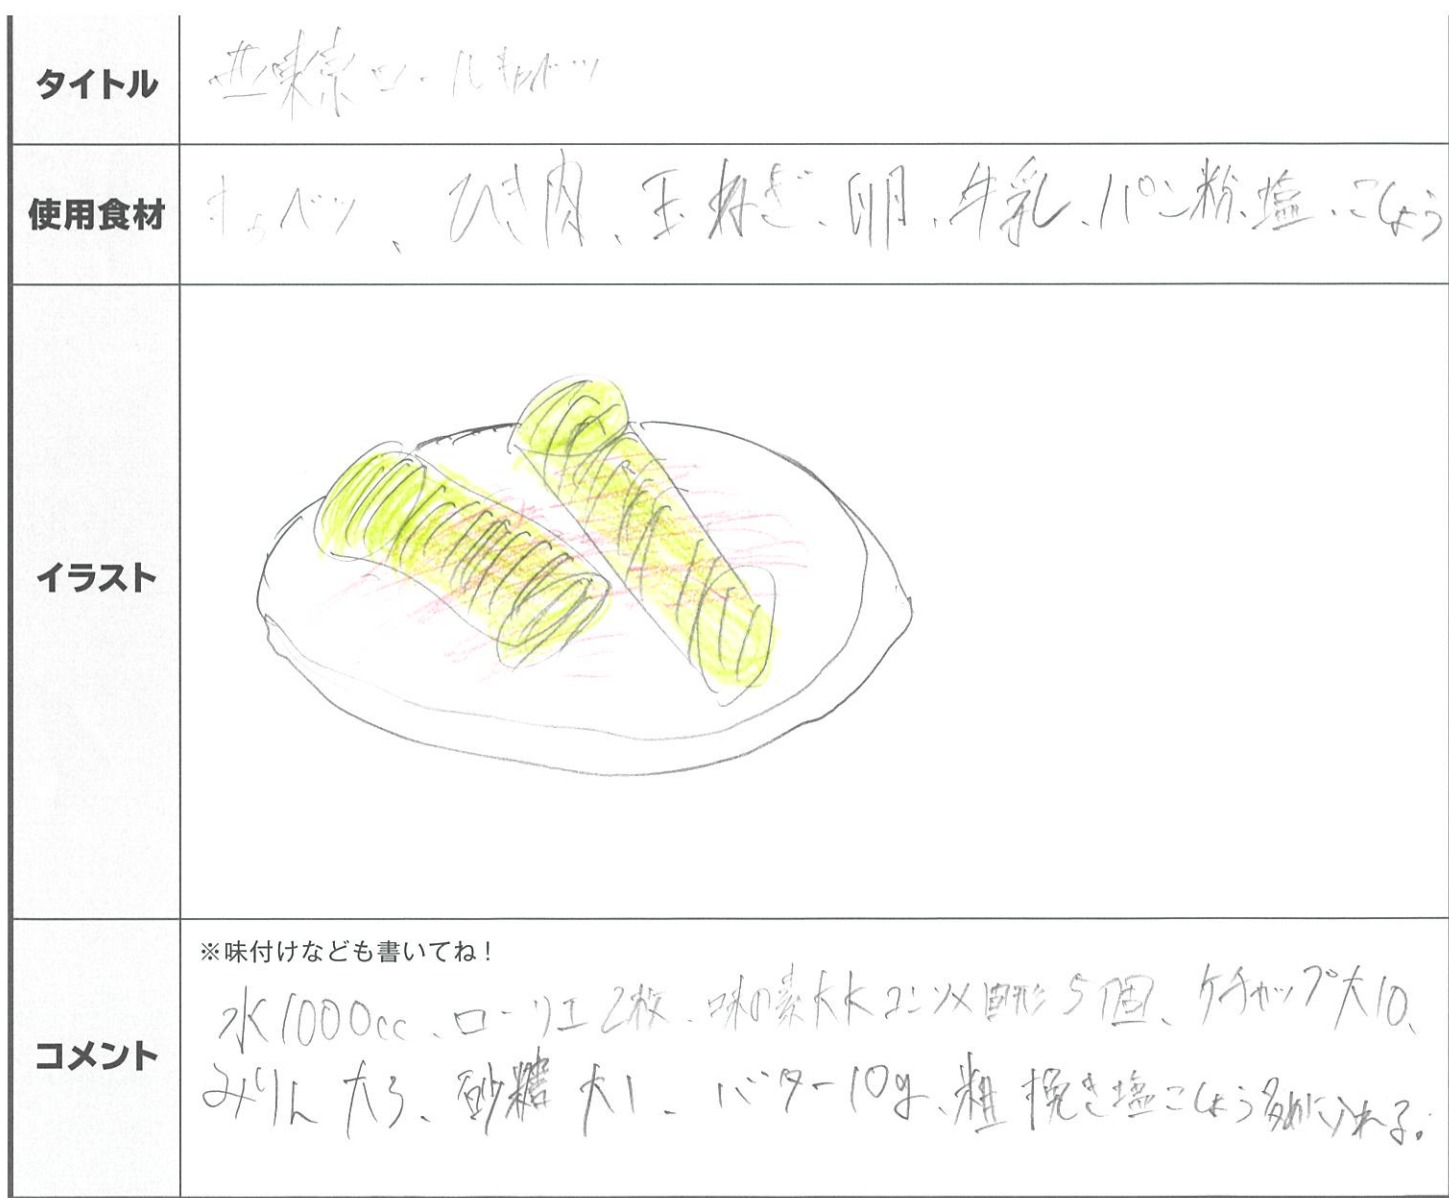 タイトル
ロールキャベツ
使用食材
キャベツ、ひき肉、玉ねぎ、卵、牛乳、パン粉、塩、こしょう
イラスト
コメント
※味付けなども書いてね！
水1000cc、ローリエ2枚、味の素KKコンソメ固形5個、ケチャップ大10、
みりん大3、砂糖大1、バター10g、粗挽き塩こしょう多めに入れる。